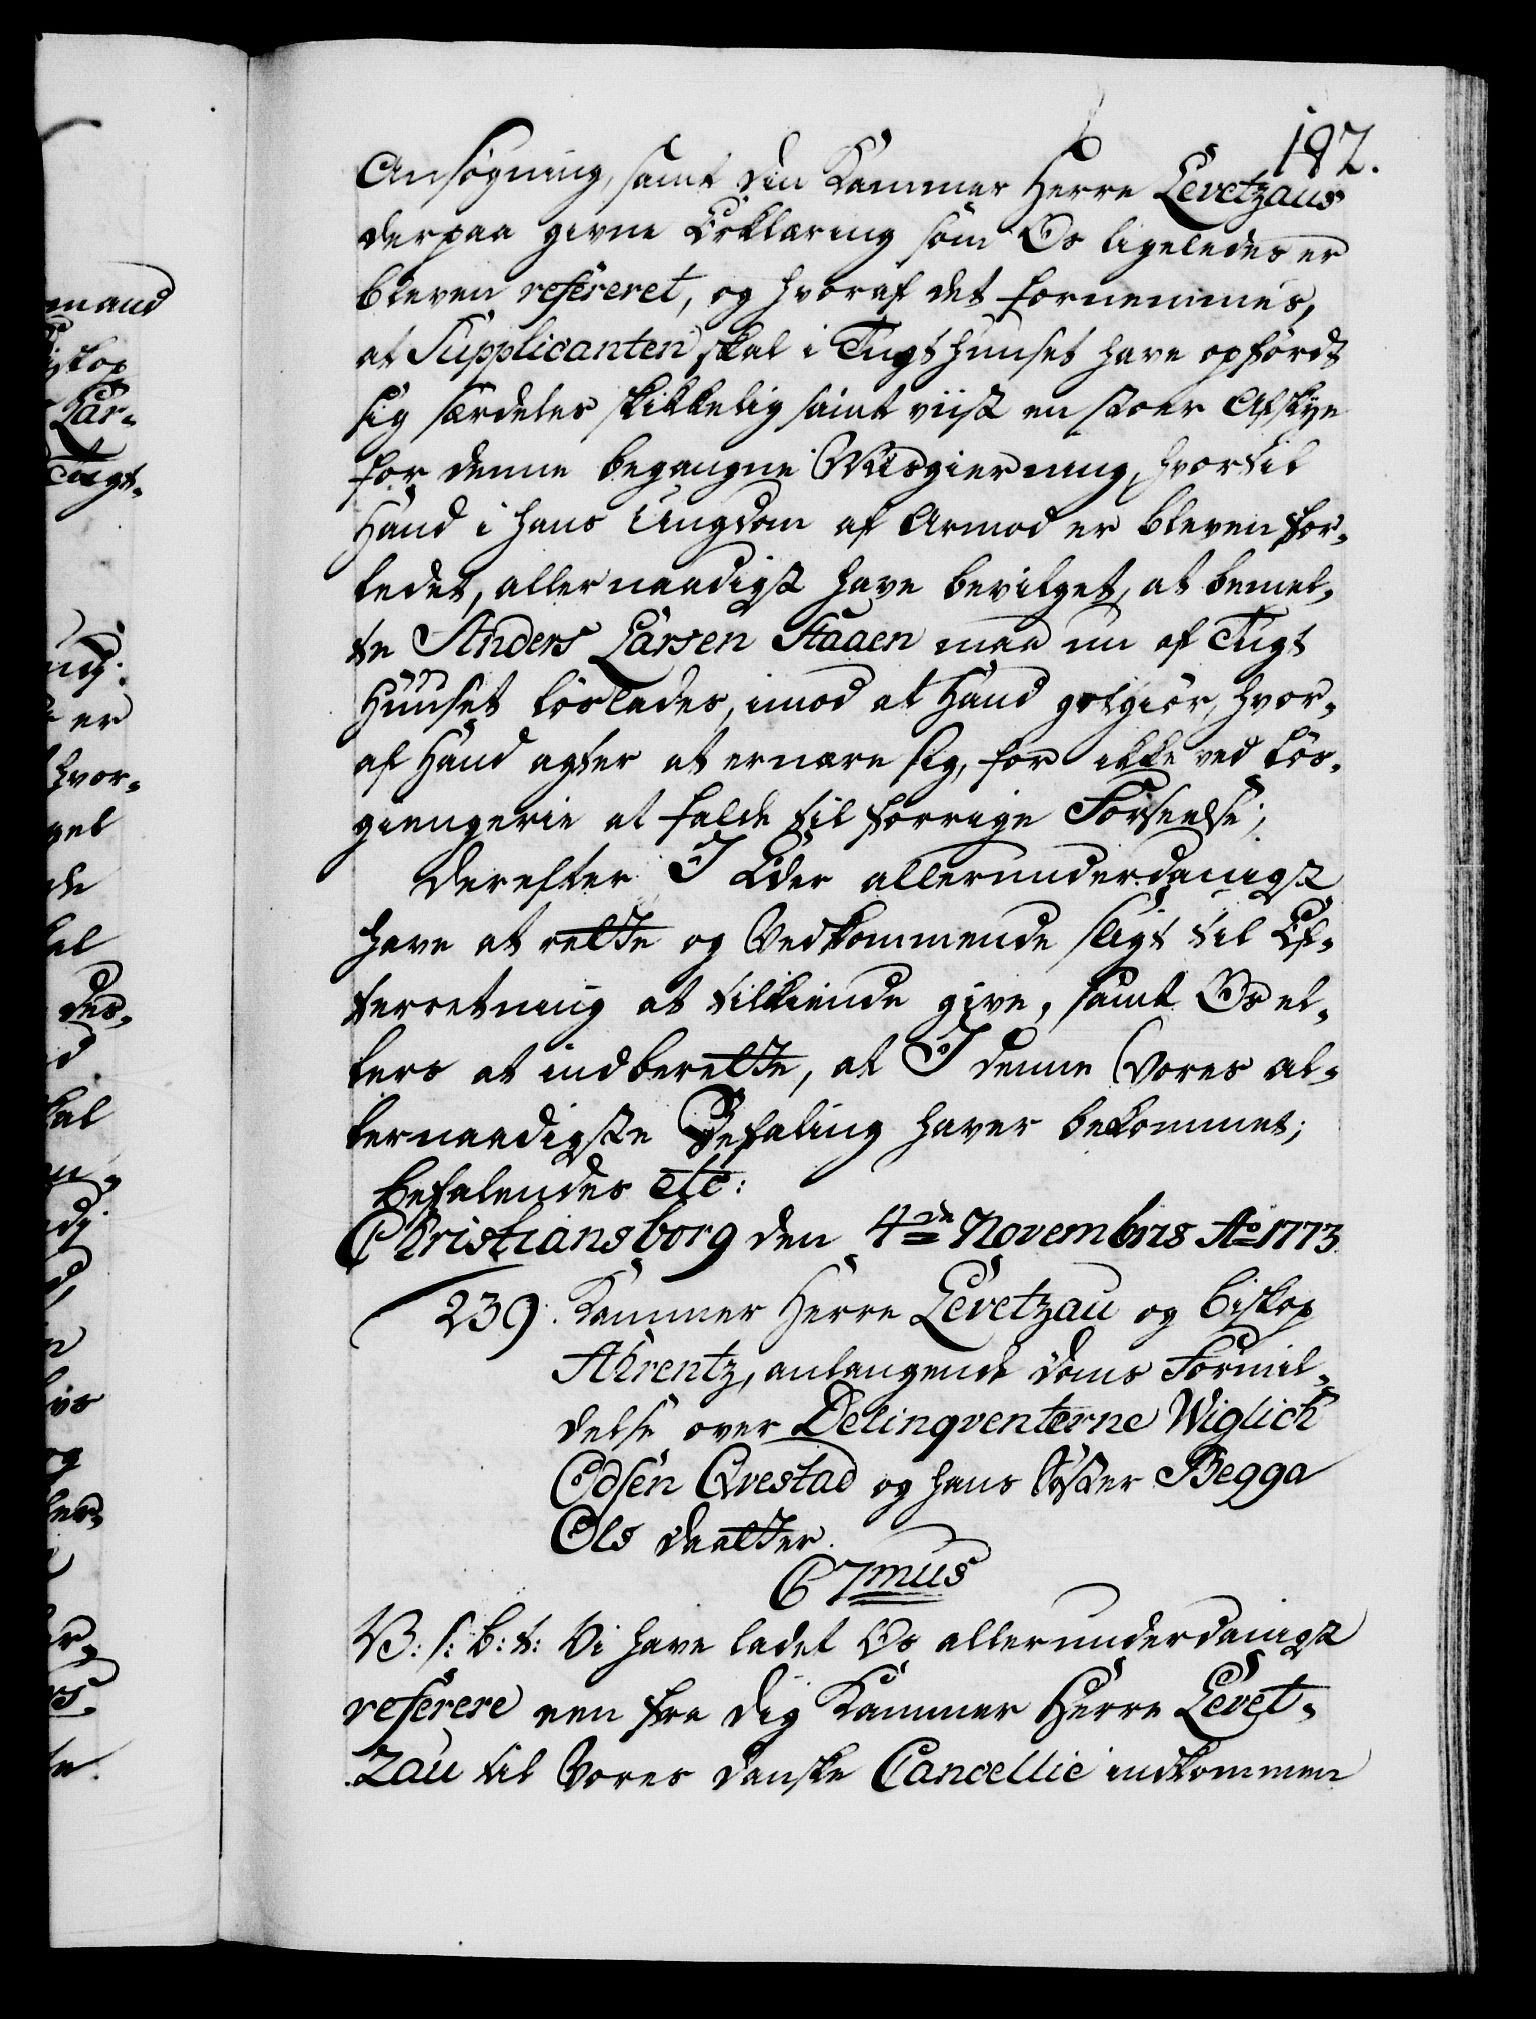 182.
Ansøgning, samt din Kammer Herre Levetzaus
derpaa givne Erklæring som Os ligeledes er
bleven refereret, og hvoraf det fornemmes,
at Supplicanten skal i Tugthuuset have opført
sig særdeles skikkelig samt viist en stoer Afskye
for denne begangne Misgierning, hvortil
Hand i hans Ungdom af Armod er bleven for-
ledet, allernaadigst have bevilget, at bemel-
te Anders Larsen Staaen maa nu af Tugt
Huuset løslades, imod at Hand godtgiør, hvor-
af Hand agter at ernære sig, for ikke ved Løs-
giengerie at falde til forrige Forseelse;
Derefter I Eder allerunderdanigst
have at rette og Vedkommende sligt til Ef-
terretning at tilkiende give, samt Os el-
lers at indberette, at I denne Vores al-
lernaadigste Befaling haver bekommet;
Befalendes etc:
Christiansborg den 4de Novembris Ao 1773.
239. Kammer Herre Levetzau og Biskop
Ahrentz, anlangende Doms Formil-
delse over Delinqventerne Wiglich
Odsen Qvestad og hans Syster Begga
Ols Daatter.
C 7mus
V: s: b: t: Vi have ladet Os allerunderdanigst
referere een fra dig Kammer Herre Levet-
zau til Vores danske Cancellie indkommen
mand
iskop
Lar-
Tugt-
er
hvor-
des,
og